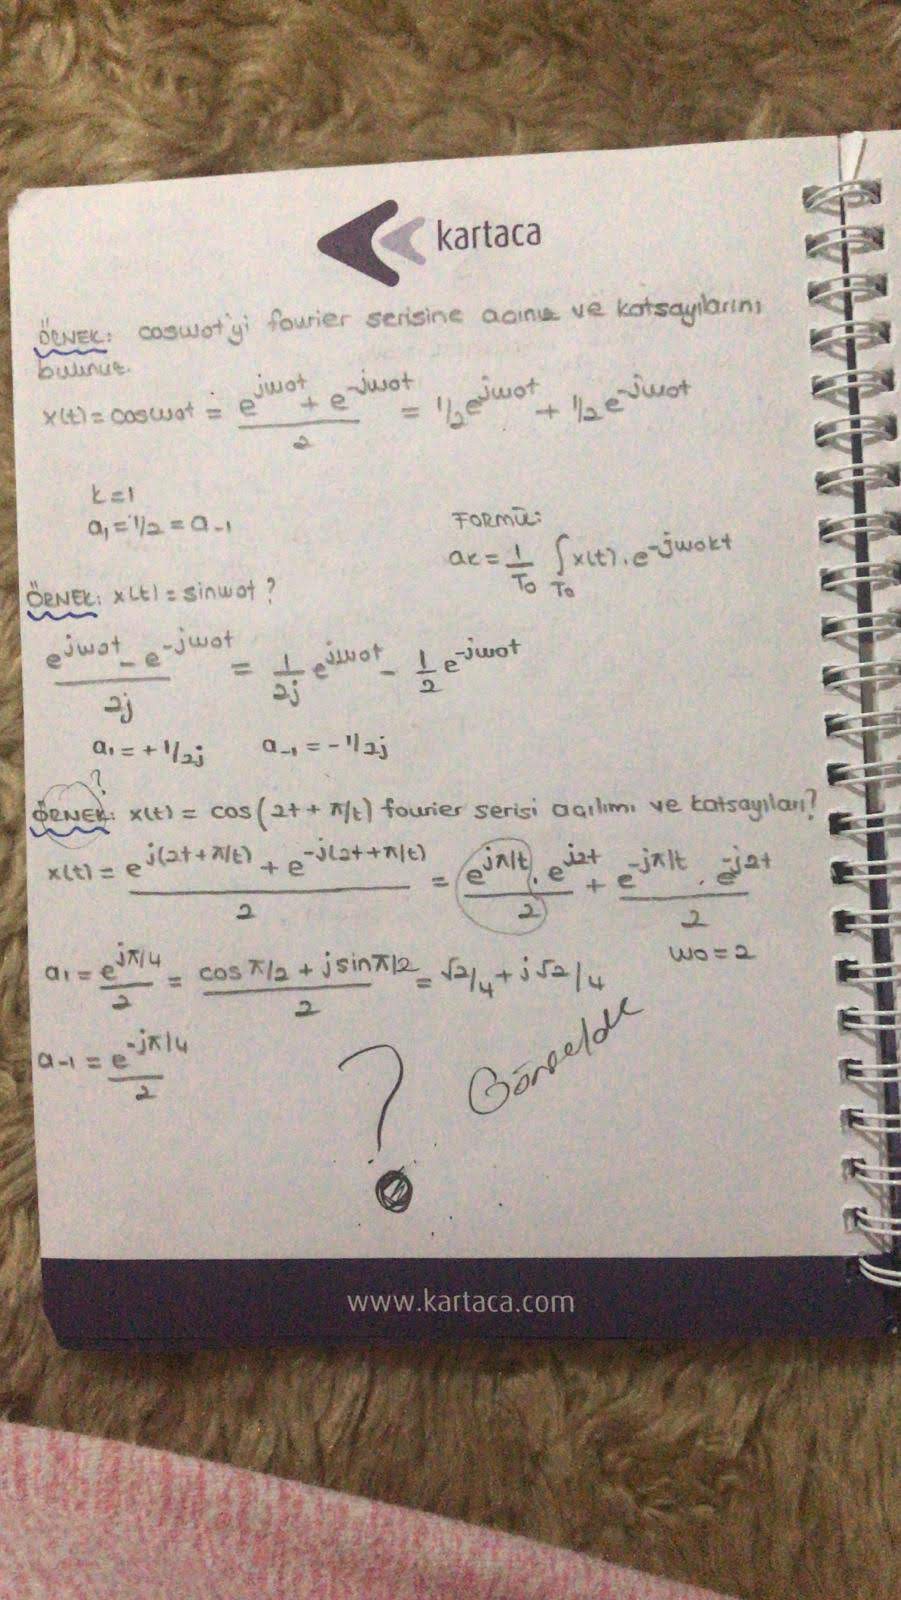 kartaca
ÖRNEK: coswot'yi fourier serisine açınız ve katsayılarını
bulunuz.
x(t) = coswot = e^jwot + e^-jwot / 2 = 1/2 e^jwot + 1/2 e^-jwot
k=1
a1 = 1/2 = a-1
FORMÜL:
ak = 1/T0 ∫T0 x(t) . e^-jwokt
ÖRNEK: x(t) = sinwot ?
e^jwot - e^-jwot / 2j = 1/2j e^jwot - 1/2 e^-jwot
a1 = + 1/2j a-1 = - 1/2j
?
ÖRNEK: x(t) = cos(2t + π/t) fourier serisi açılımı ve katsayıları?
x(t) = e^j(2t+π/t) + e^-j(2t+π/t) / 2 = e^jπ/t . e^j2t / 2 + e^-jπ/t . e^-j2t / 2
wo = 2
a1 = e^jπ/4 / 2 = cosπ/2 + jsinπ/2 / 2 = √2/4 + j√2/4
a-1 = e^-jπ/4 / 2
?
www.kartaca.com